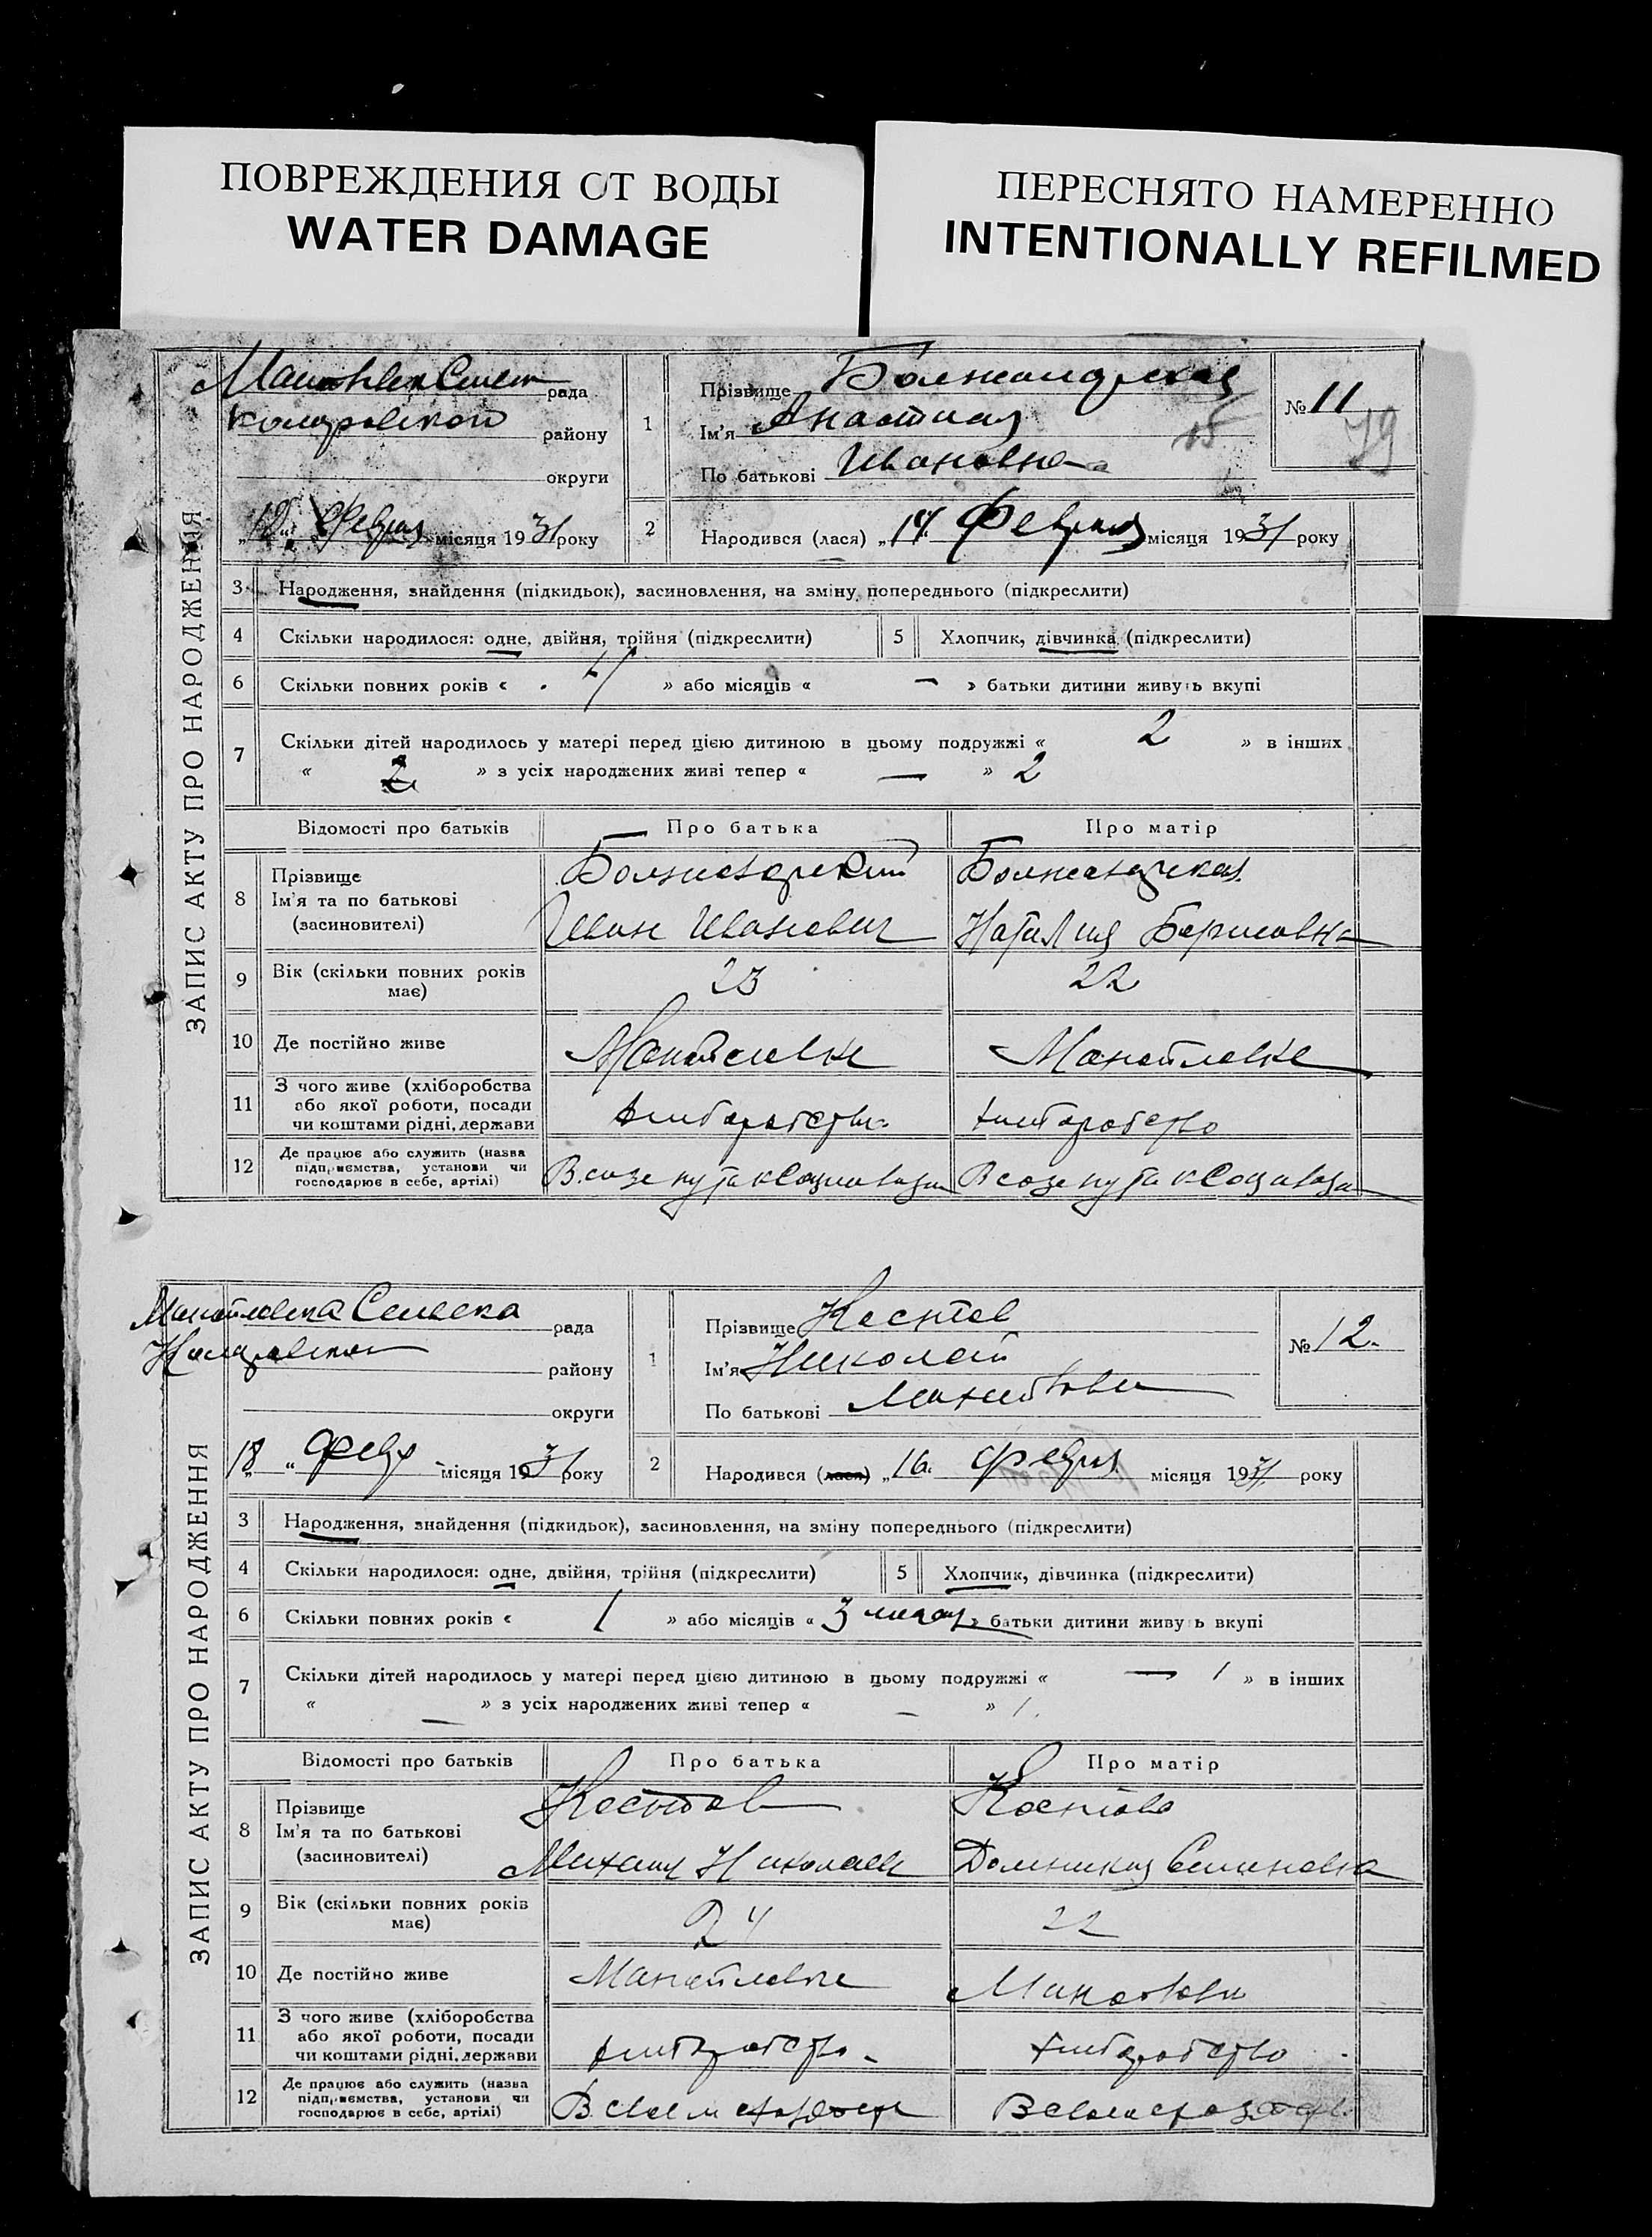 ПОВРЕЖДЕНИЯ ОТ ВОДЫ
WATER DAMAGE
ПЕРЕСНЯТО НАМЕРЕННО
INTENTIONALLY REFILMED
ЗАПИС АКТУ ПРО НАРОДЖЕННЯ
рада
району
округи
„12“ Феврал місяця 1931 року
1
Прізвище
Ім'я Анастасия
По батькові Ивановна
№ 11
15
79
2
Народився (лася) „14“ Феврал місяця 1931 року
3 Народження, знайдення (підкидьок), засиновлення, на зміну попереднього (підкреслити)
4 Скільки народилося: одне, двійня, трійня (підкреслити)
5 Хлопчик, дівчинка (підкреслити)
6 Скільки повних років « 4 » або місяців « — » батьки дитини живуть вкупі
7 Скільки дітей народилось у матері перед цією дитиною в цьому подружжі « 2 » в інших
« 2 » з усіх народжених живі тепер « — » 2
Відомості про батьків
Про батька
Про матір
8 Прізвище
Ім'я та по батькові
(засиновителі)
Иван Иванович
Наталия Борисовна
9 Вік (скільки повних років
має)
23
22
10 Де постійно живе
Манойловке
Манойловке
11 З чого живе (хліборобства
або якої роботи, посади
чи коштами рідні, держави
хлиборобство
хлиборобство
12 Де працює або служить (назва
підприємства, установи чи
господарює в себе, артілі)
В созе путь к Социализм
В созе путь к Социализ
ЗАПИС АКТУ ПРО НАРОДЖЕННЯ
рада
району
округи
„18“ Февр місяця 1931 року
1
Прізвище
Ім'я Николай
По батькові
№ 12.
2
Народився (лася) „16“ Феврал місяця 1931 року
3 Народження, знайдення (підкидьок), засиновлення, на зміну попереднього (підкреслити)
4 Скільки народилося: одне, двійня, трійня (підкреслити)
5 Хлопчик, дівчинка (підкреслити)
6 Скільки повних років « 1 » або місяців « 3 » батьки дитини живуть вкупі
7 Скільки дітей народилось у матері перед цією дитиною в цьому подружжі « — 1 » в інших
« — » з усіх народжених живі тепер « — » 1.
Відомості про батьків
Про батька
Про матір
8 Прізвище
Ім'я та по батькові
(засиновителі)
Михаил Николаев
Доминикия Семеновна
9 Вік (скільки повних років
має)
24
22
10 Де постійно живе
Манойловке
11 З чого живе (хліборобства
або якої роботи, посади
чи коштами рідні, держави
хлиборобство
хлиборобство
12 Де працює або служить (назва
підприємства, установи чи
господарює в себе, артілі)
В своем
В своем